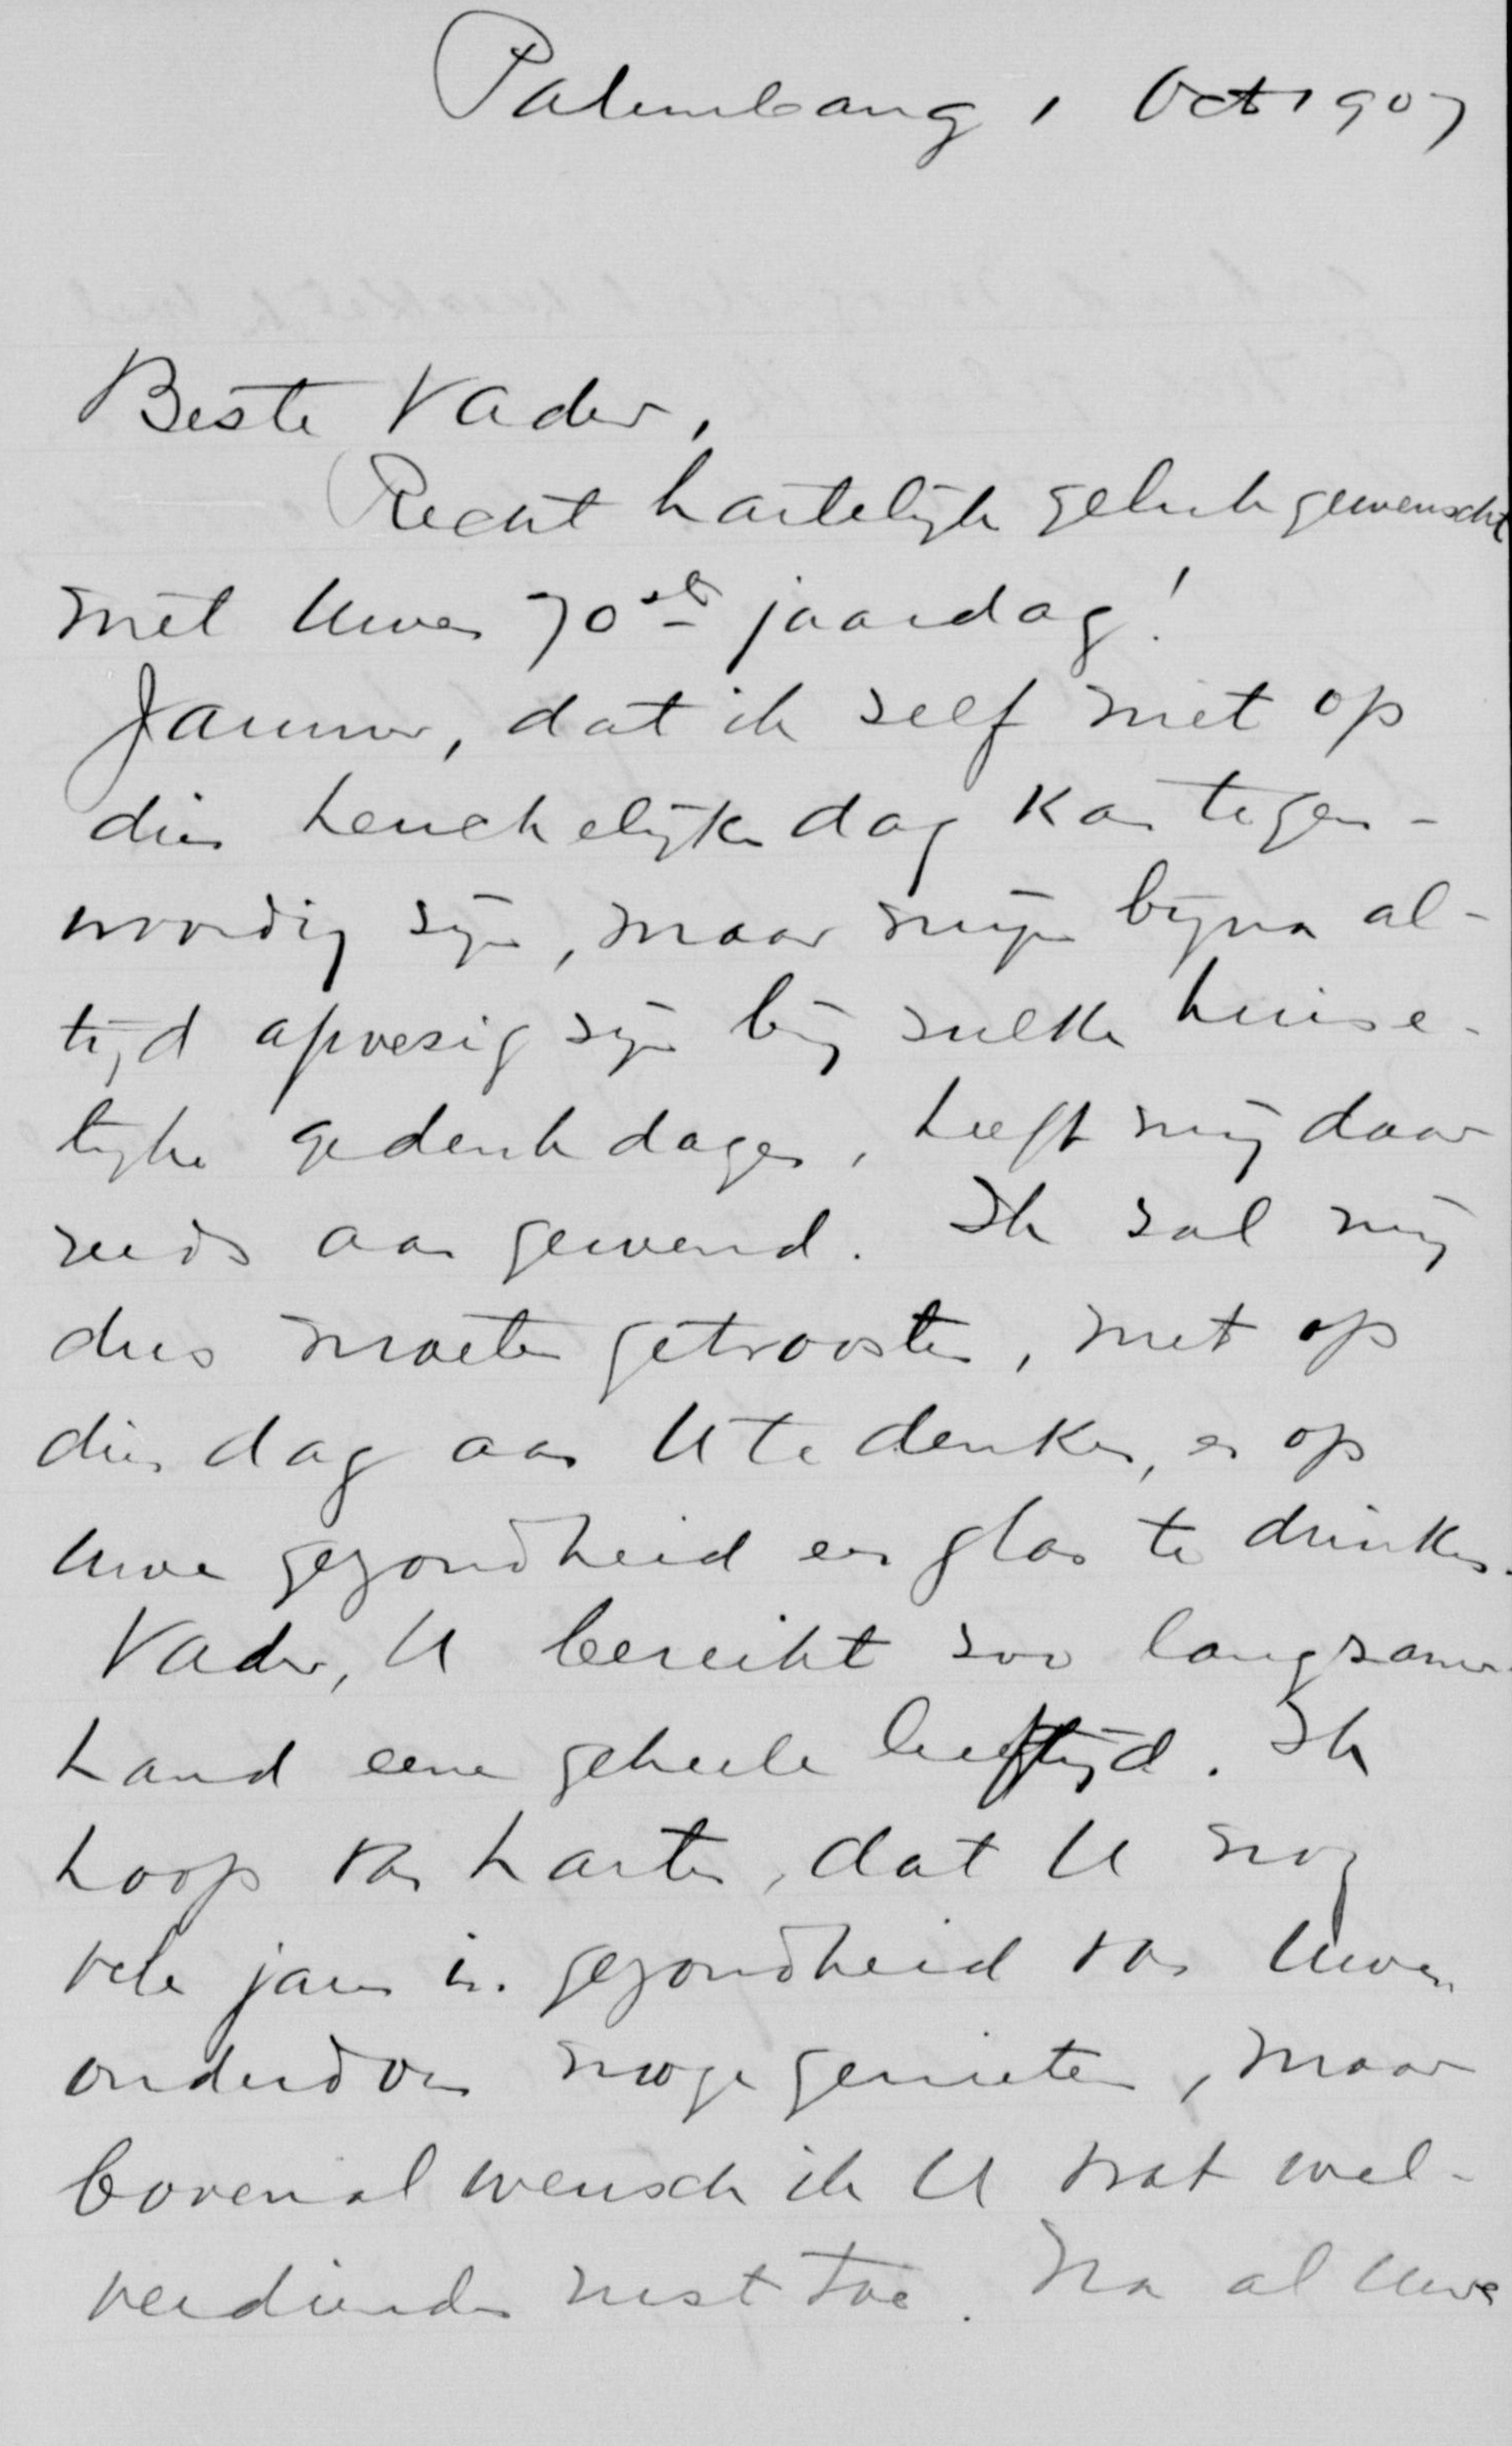 Palembang, Oct 1907
Beste Vader,
Recht hartelijk geluk gewenscht
met Uwen 70ste jaardag!
Jammer, dat ik zelf niet op
dien heuchelijken dag kan tegen-
woordig zijn, maar mijn bijna al-
tijd afwezig zijn bij zulke huise-
lijke gedenkdagen, heeft mij daar
reeds aan gewend. Ik zal mij
dus moeten getroosten, met op
dien dag aan U te denken, en op
Uwe gezondheid een glas te drinken.
Vader, U bereikt zoo langzamer-
hand eene geheele leeftijd. Ik
hoop van harte, dat U nog
vele jaren in gezondheid van Uwen
ouderdom moge genieten, maar
bovenal wensch ik U wat wel-
verdiende rust toe. Na al Uwe